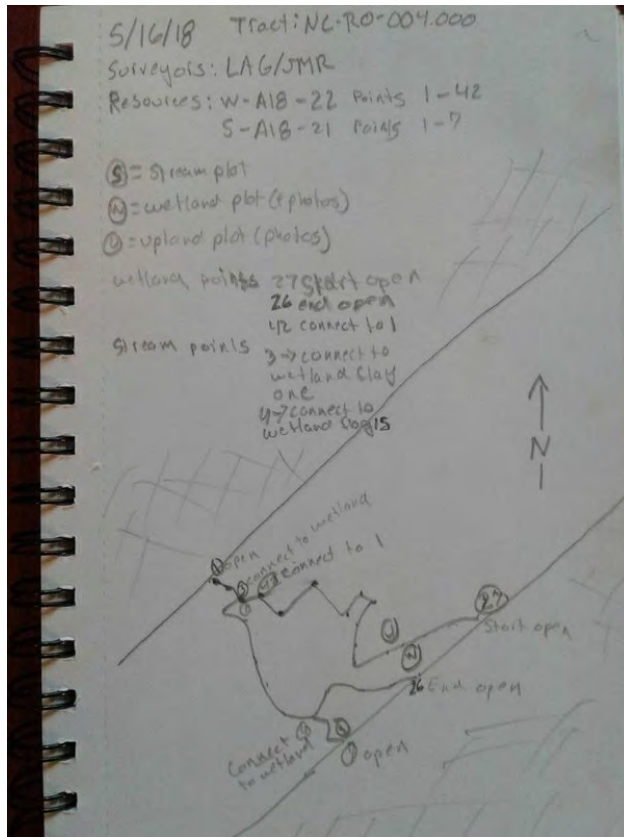 5/16/18 Tract: NC-RO-004.000
Surveyors: LAG/JMR
Resources: W-A18-22 Points 1-42
S-A18-21 Points 1-7
S = stream plot
W = wetland plot (+ photos)
U = upland plot (photos)
wetland points 27 start open
26 end open
42 connect to 1
Stream points 3 → connect to
wetland flag
one
4 → connect to
wetland flag 15
open
connect to wetland
42 connect to 1
27
Start open
U
W
26 End open
Connect
to wetland
open
N